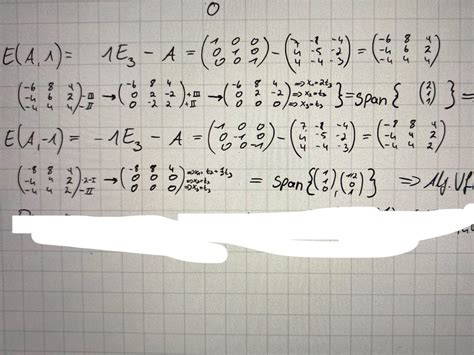 0
E(A,1) = 1E₃ - A = (1 0 0; 0 1 0; 0 0 1) - (7 -8 -4; 4 -5 -2; 4 -4 -3) = (-6 8 4; -4 6 2; -4 4 4)
(-6 8 4; -4 6 2; -4 4 4) -III -II → (-6 8 4; 0 2 -2; 0 -2 2) +III → (-6 8 4; 0 2 -2; 0 0 0) ⇒x₁=2t₃ ⇒x₂=t₃ ⇒x₃=t₃ } = span{(2; 1; 1)} =
E(A,-1) = -1E₃ - A = (1 0 0; 0 -1 0; 0 0 1) - (7 -8 -4; 4 -5 -2; 4 -4 -3) = (-8 8 4; -4 4 2; -4 4 2)
(-8 8 4; -4 4 2; -4 4 2) ·2-I -II → (-8 8 4; 0 0 0; 0 0 0) = span{(1; 1; 0), (1/2; 0; 1)} ⇒